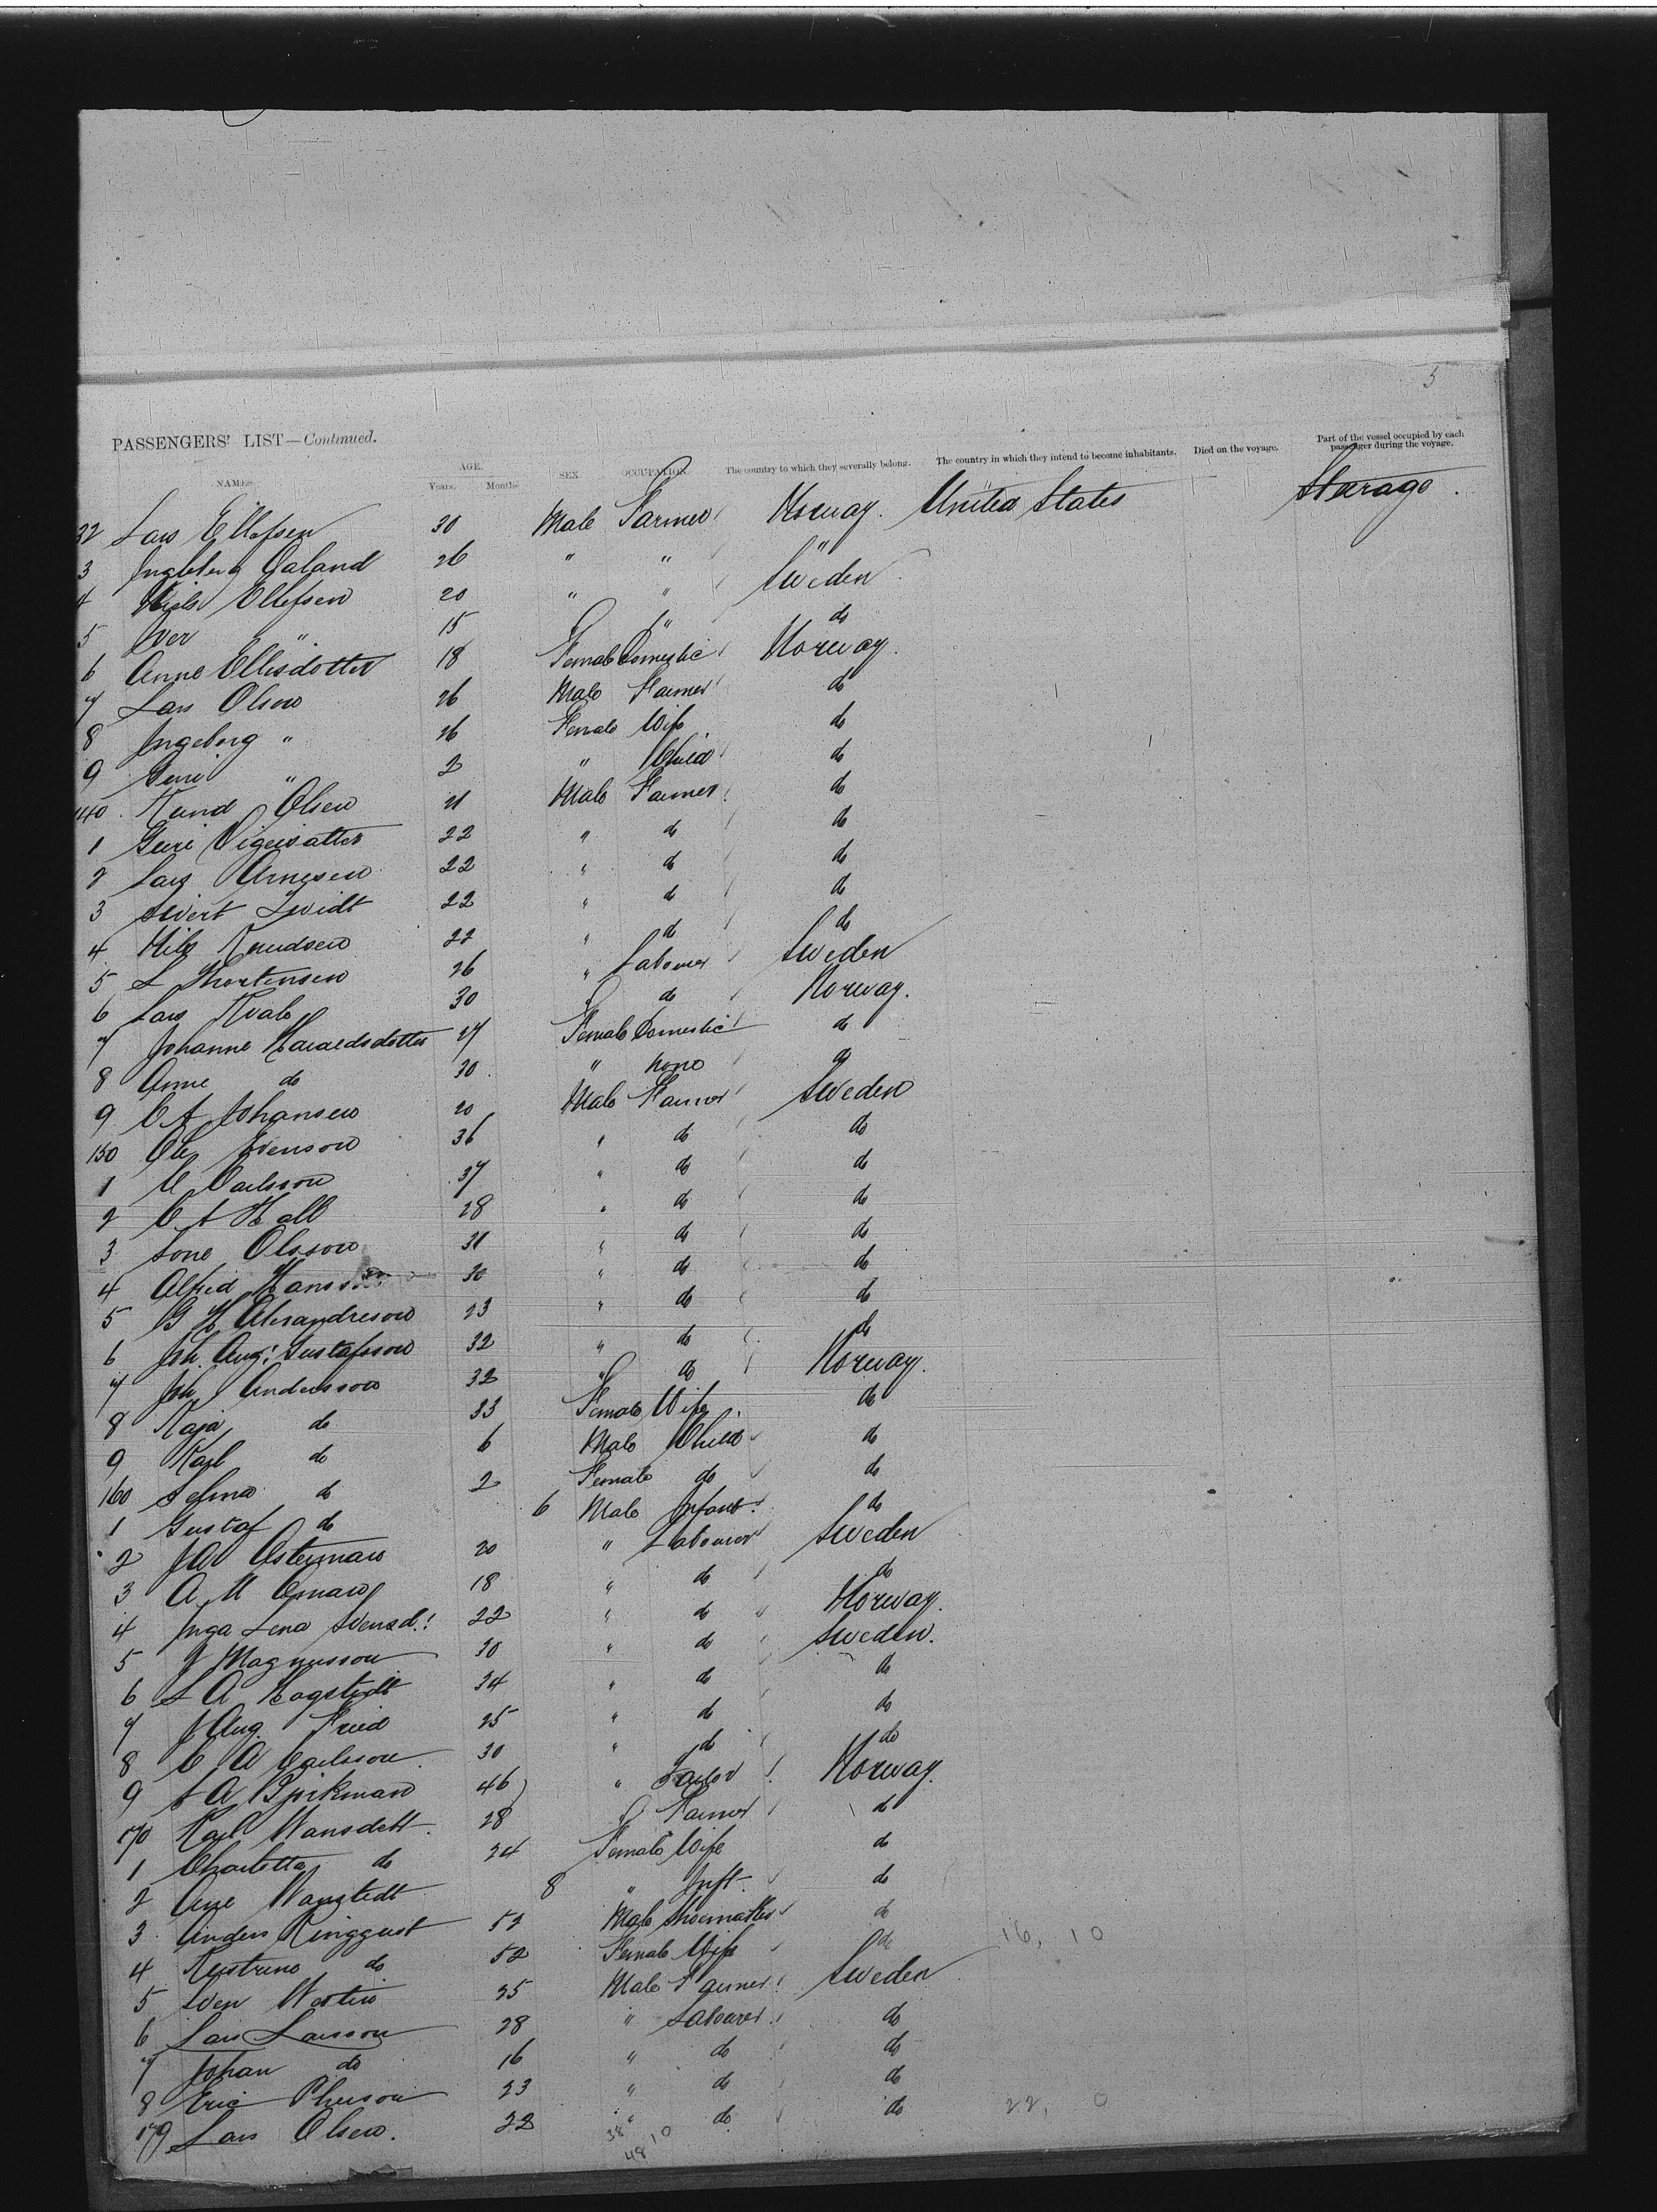 5
PASSENGERS' LIST—Continued.
NAMES AGE. Years. Months SEX OCCUPATION The country to which they severally belong. The country in which they intend to become inhabitants. Died on the voyage. Part of the vessel occupied by each passenger during the voyage.
32 Lars Ellefsen 30 Male Farmer Norway. United States Sterage.
3 Ingleberg Galand 26 " " "
4 Niels Ellefsen 20 " " Sweden
5 Iver " 15 " do
6 Anne Ellisdotter 18 Female Domestic Norway.
7 Lars Olson 26 Male Farmer do
8 Ingeborg " 26 Female Wife do
9 Guri " 2 " Child do
140. Knud Olsen 21 Male Farmer do
1 Guri 22 " do do
2 Lars Arnesen 22 " do do
3 Sivert 22 " do do
4 Nils Knudsen 22 " do do
5 L Mortensen 26 " Labourer Sweden
6 Lars Kvale 30 do Norway.
7 Johanne Haraldsdotter 27 Female Domestic do
8 Anne do 30 " None do
9 C A Johansen 20 Male Farmer Sweden
150 Ole Svenson 36 " do do
1 C Carlsson 37 " do do
2 C A Hall 28 " do do
3 Sone Olsson 31 " do do
4 Alfred Hansson 30 " do do
5 G H Alexandreson 23 " do do
6 Joh. Aug: Gustafsson 32 " do do
7 Joh Andersson 32 " do Norway.
8 Kaja do 33 Female Wife do
9 Karl do 6 Male Child do
160 Selma do 2 Female do do
1 Gustaf do 6 Male Infant do
2 J A Osterman 20 " Labourer Sweden
3 A M 18 " do do
4 Inga Lena Svensd: 22 " do Norway.
5 J Magnusson 30 " do Sweden.
6 L A Hagstedt 34 " do do
7 J Aug. Fried 25 " do do
8 C A Carlsson 30 " do do
9 A Bjorkman 46 " Tailor Norway.
170 Karl Wansdett 28 Farmer do
1 Charlotta do 24 Female Wife do
2 Wanstedt 8 " Inft. do
3 Anders Ringquist 52 Male Shoemaker do
4 do 52 Female Wife do 16, 10
5 Sven Westin 35 Male Farmer Sweden
6 Lars Larsson 28 " Labourer do
7 Johan do 16 " do do
8 Eric Pherson 23 " do do
179 Lars Olsen. 22 " do do 22, 0
38 10
48